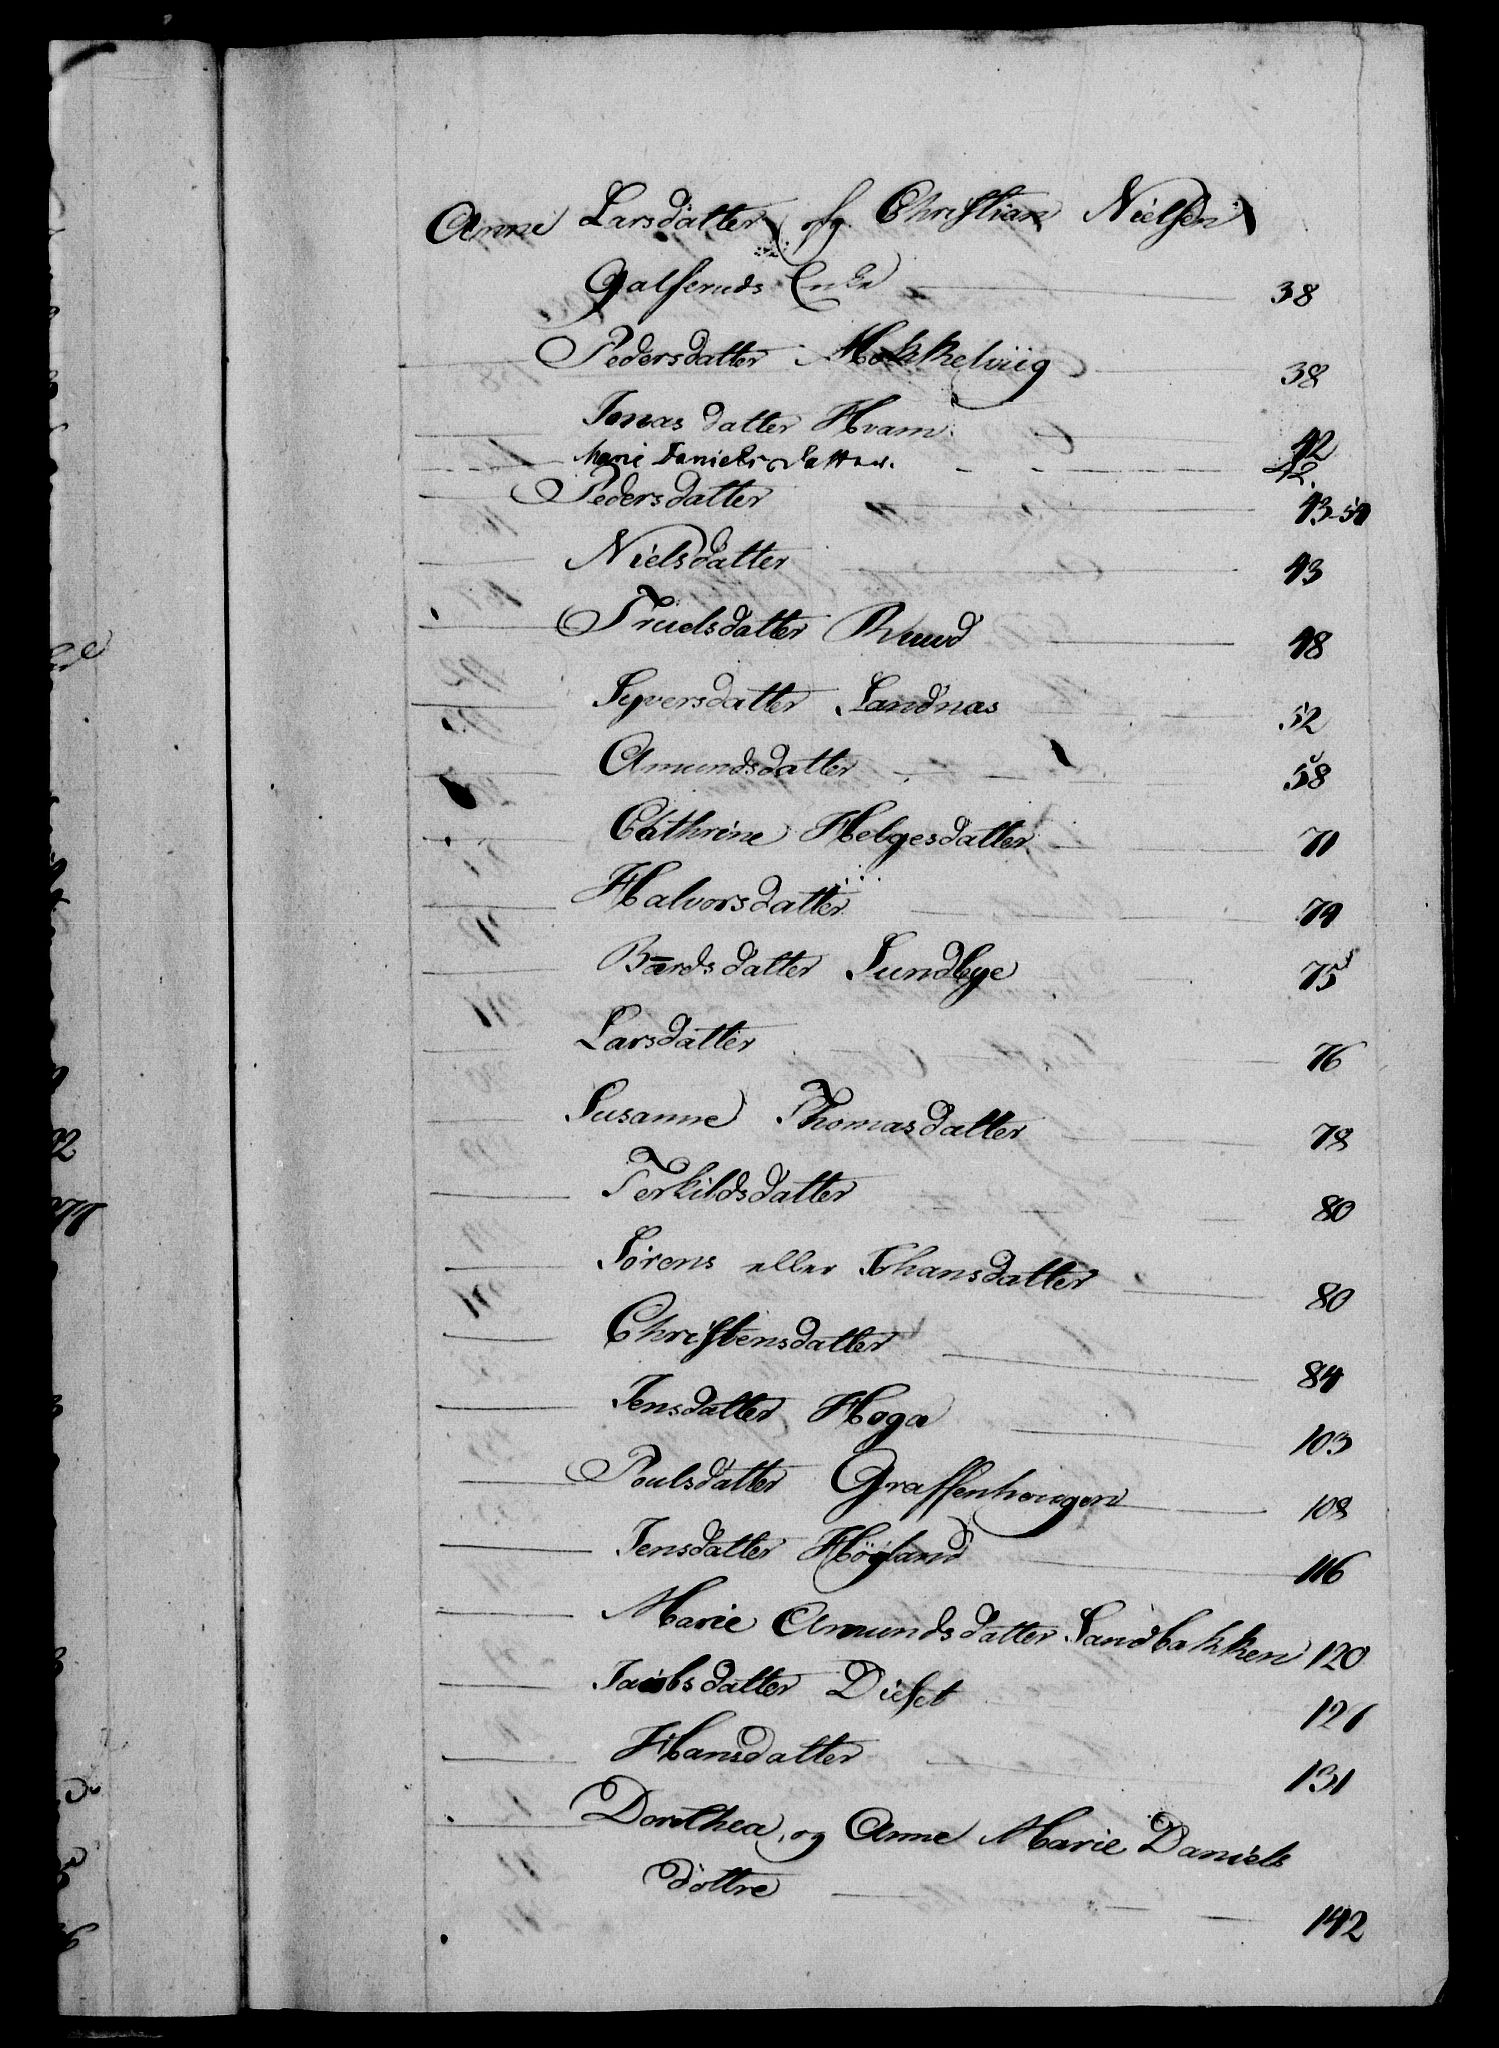 Anne Larsdatter, afg. Christian Nielsen
Galseruds Enke 38
Pedersdatter Mokkelviig 38
Jonasdatter Hvam 42
Marie Danielsdatter 42.
Pedersdatter 43-54
Nielsdatter 43
Truelsdatter Ruud 48
Syversdatter Sandnas 52
Amundsdatter 58
Cathrine Helgesdatter 71
Halvorsdatter 74
Bærdsdatter Sundbye 75
Larsdatter 76
Susanne Thomasdatter 78
Terkildsdatter 80
Sörens eller Johansdatter 80
Christensdatter 84
Jensdatter Hoga 103
Poulsdatter Graffenhougen 108
Jensdatter Höyland 116
Marie Amundsdatter Sandbakken 120
Jacobsdatter Dieset 121
Hansdatter 131
Dorothea, og Anne Marie Daniels
döttre 142